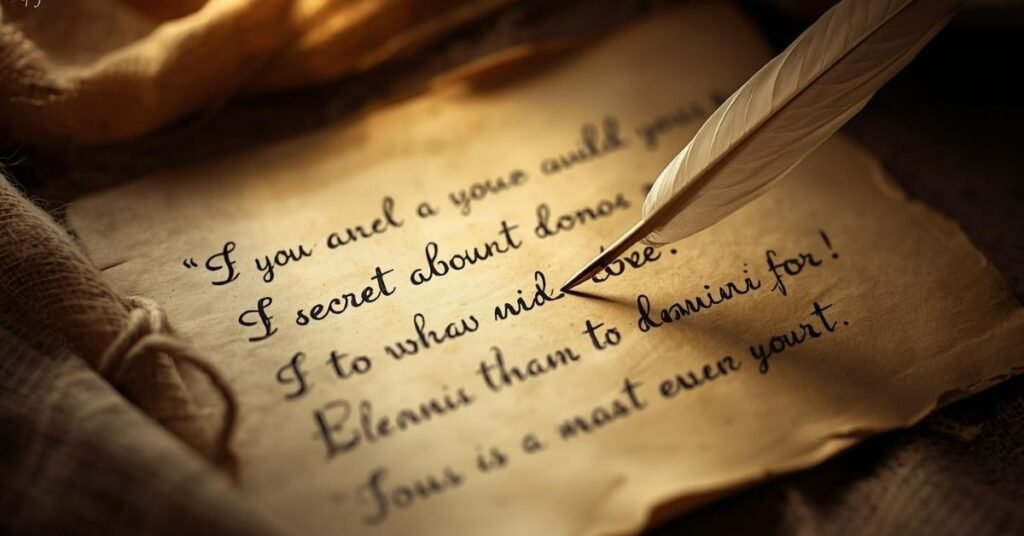 “I you anel a youe auald your
I secret abount donos
I to whau nid ove.
Elennis tham to demini for!
Jous is a mast euen yourt.